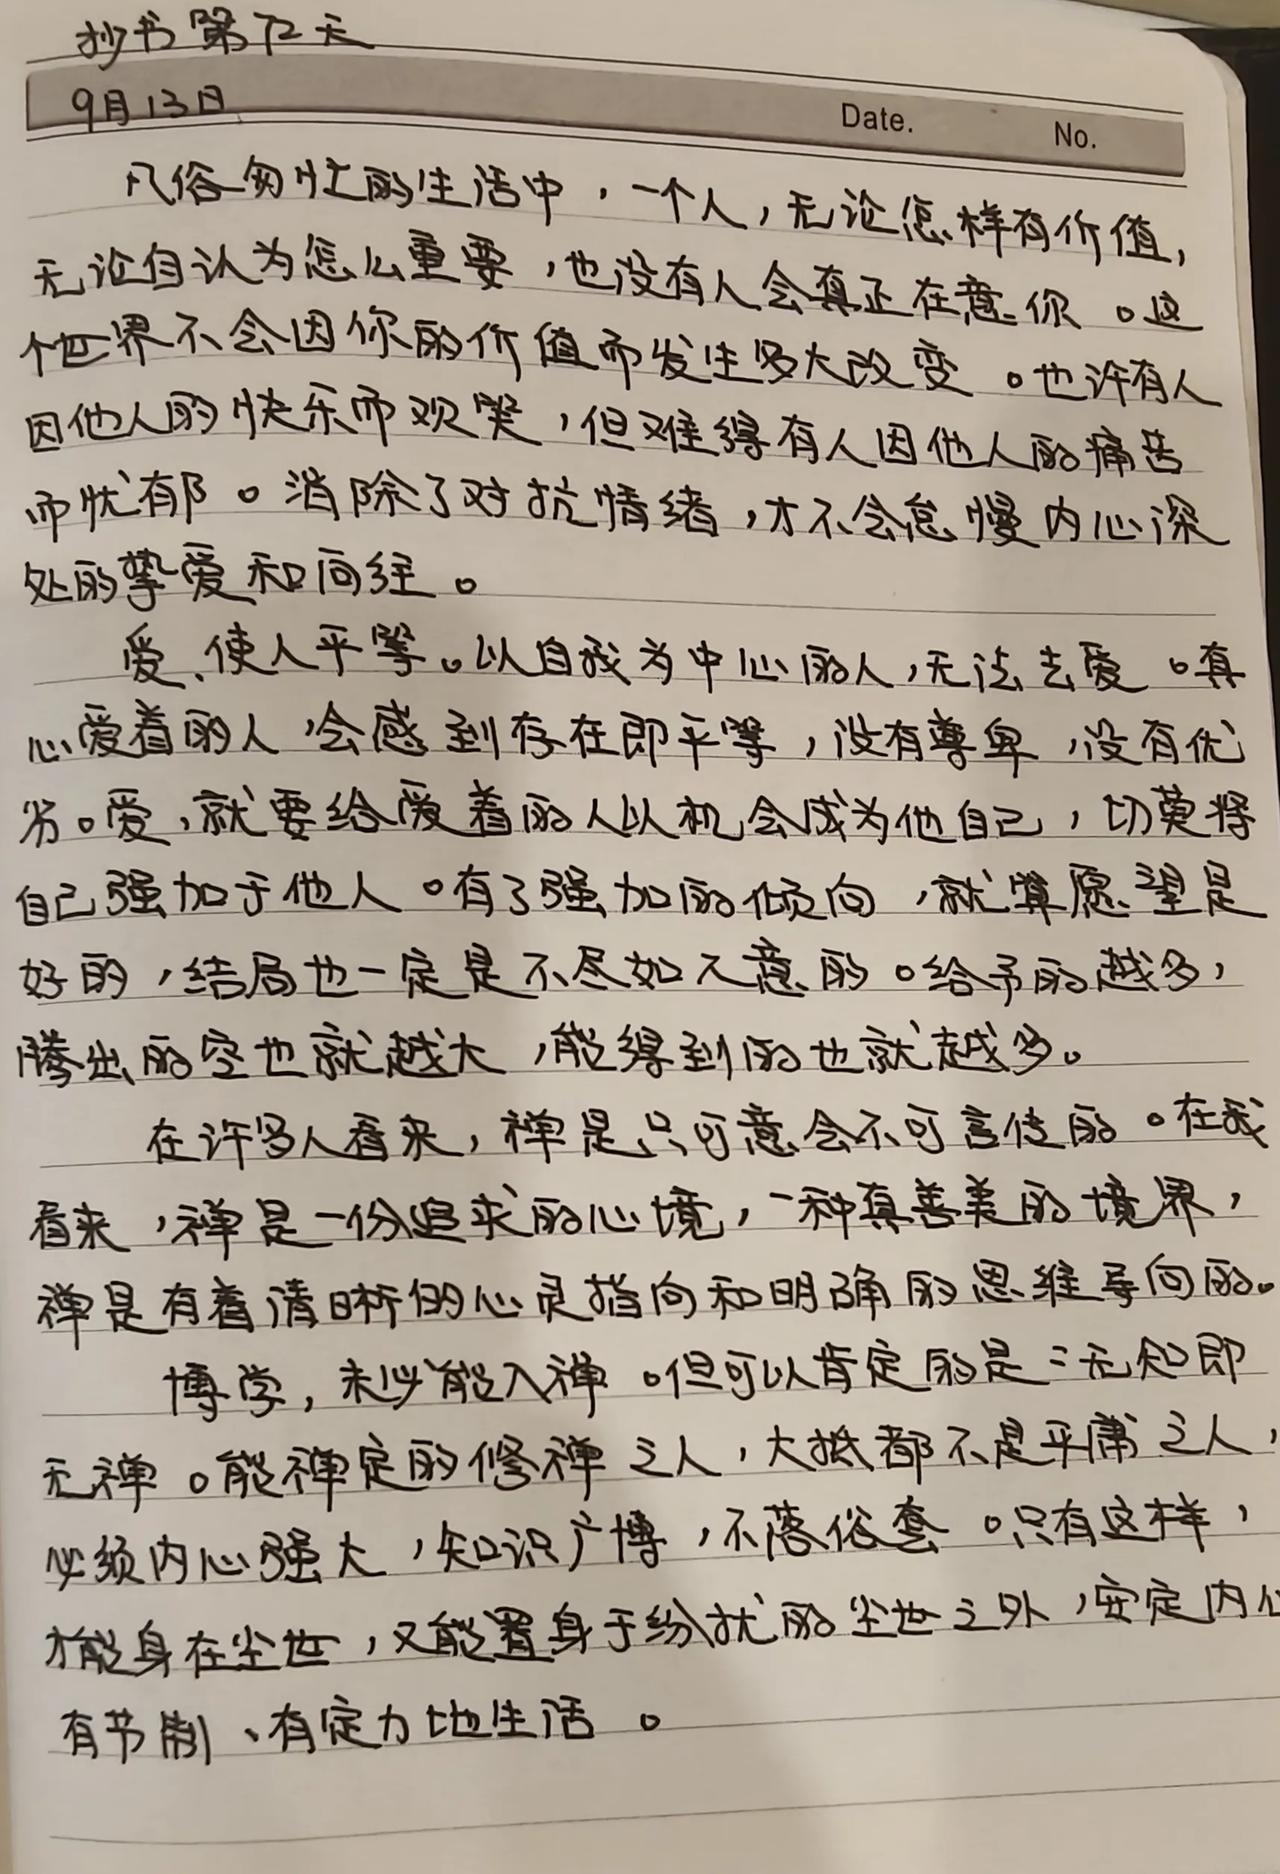 抄书第72天
9月13日
Date. No.
凡俗匆忙的生活中，一个人，无论怎样有价值，
无论自认为怎么重要，也没有人会真正在意你。这
个世界不会因你的价值而发生多大改变。也许有人
因他人的快乐而欢笑，但难得有人因他人的痛苦
而忧郁。消除了对抗情绪，才不会怠慢内心深
处的挚爱和向往。
爱、使人平等。以自我为中心的人，无法去爱。真
心爱着的人，会感到存在即平等，没有尊卑，没有优
劣。爱，就要给爱着的人以机会成为他自己，切莫将
自己强加于他人。有了强加的倾向，就算愿望是
好的，结局也一定是不尽如人意的。给予的越多，
腾出的空也就越大，能得到的也就越多。
在许多人看来，禅是只可意会不可言传的。在我
看来，禅是一份追求的心境，一种真善美的境界，
禅是有着清晰的心灵指向和明确的思维导向的。
博学，未必能入禅。但可以肯定的是：无知即
无禅。能禅定的修禅之人，大抵都不是平庸之人，
必须内心强大，知识广博，不落俗套。只有这样，
才能身在尘世，又能置身于纷扰的尘世之外，安定内心
有节制、有定力地生活。